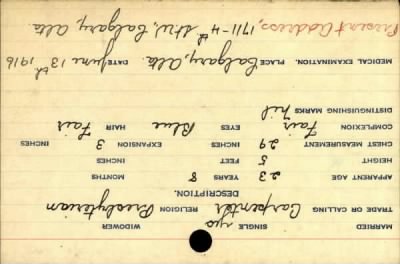 MARRIED SINGLE yes WIDOWER
TRADE OR CALLING Carpenter RELIGION Presbyterian
DESCRIPTION.
APPARENT AGE 23 YEARS 8 MONTHS
HEIGHT 5 FEET INCHES
CHEST MEASUREMENT 29 INCHES EXPANSION 3 INCHES
COMPLEXION Fair EYES Blue HAIR Fair
DISTINGUISHING MARKS Nil
MEDICAL EXAMINATION. PLACE Calgary, Alta. DATE June 13th 1916
Present address, 1711-4th St. W., Calgary, Alta.